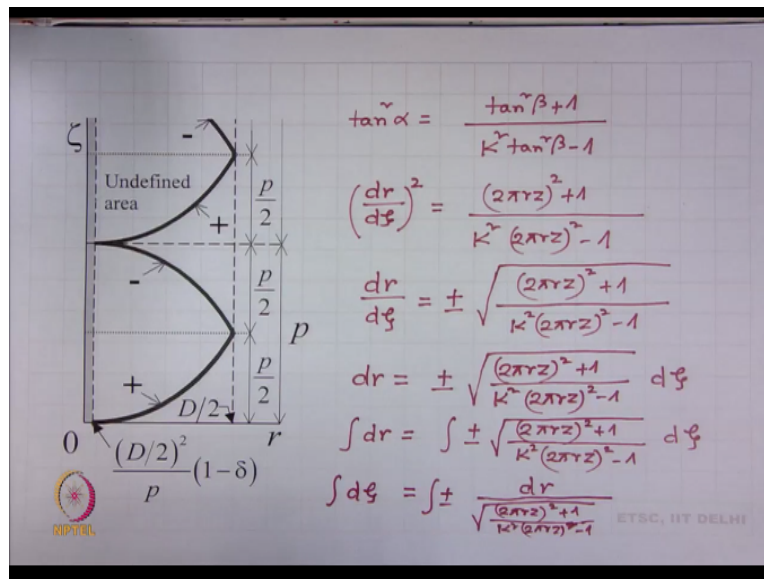 ζ
-
Undefined
area
p/2
+
-
p/2
p
+
p/2
D/2
0
r
(D/2)²/p (1-δ)
tan²α = (tan²β+1)/(K²tan²β-1)
(dr/dξ)² = ((2πrz)²+1)/(K²(2πrz)²-1)
dr/dξ = ± √(((2πrz)²+1)/(K²(2πrz)²-1))
dr = ± √(((2πrz)²+1)/(K²(2πrz)²-1)) dξ
∫dr = ∫ ± √(((2πrz)²+1)/(K²(2πrz)²-1)) dξ
∫dξ = ∫± dr/√(((2πrz)²+1)/(K²(2πrz)²-1))
NPTEL
ETSC, IIT DELHI